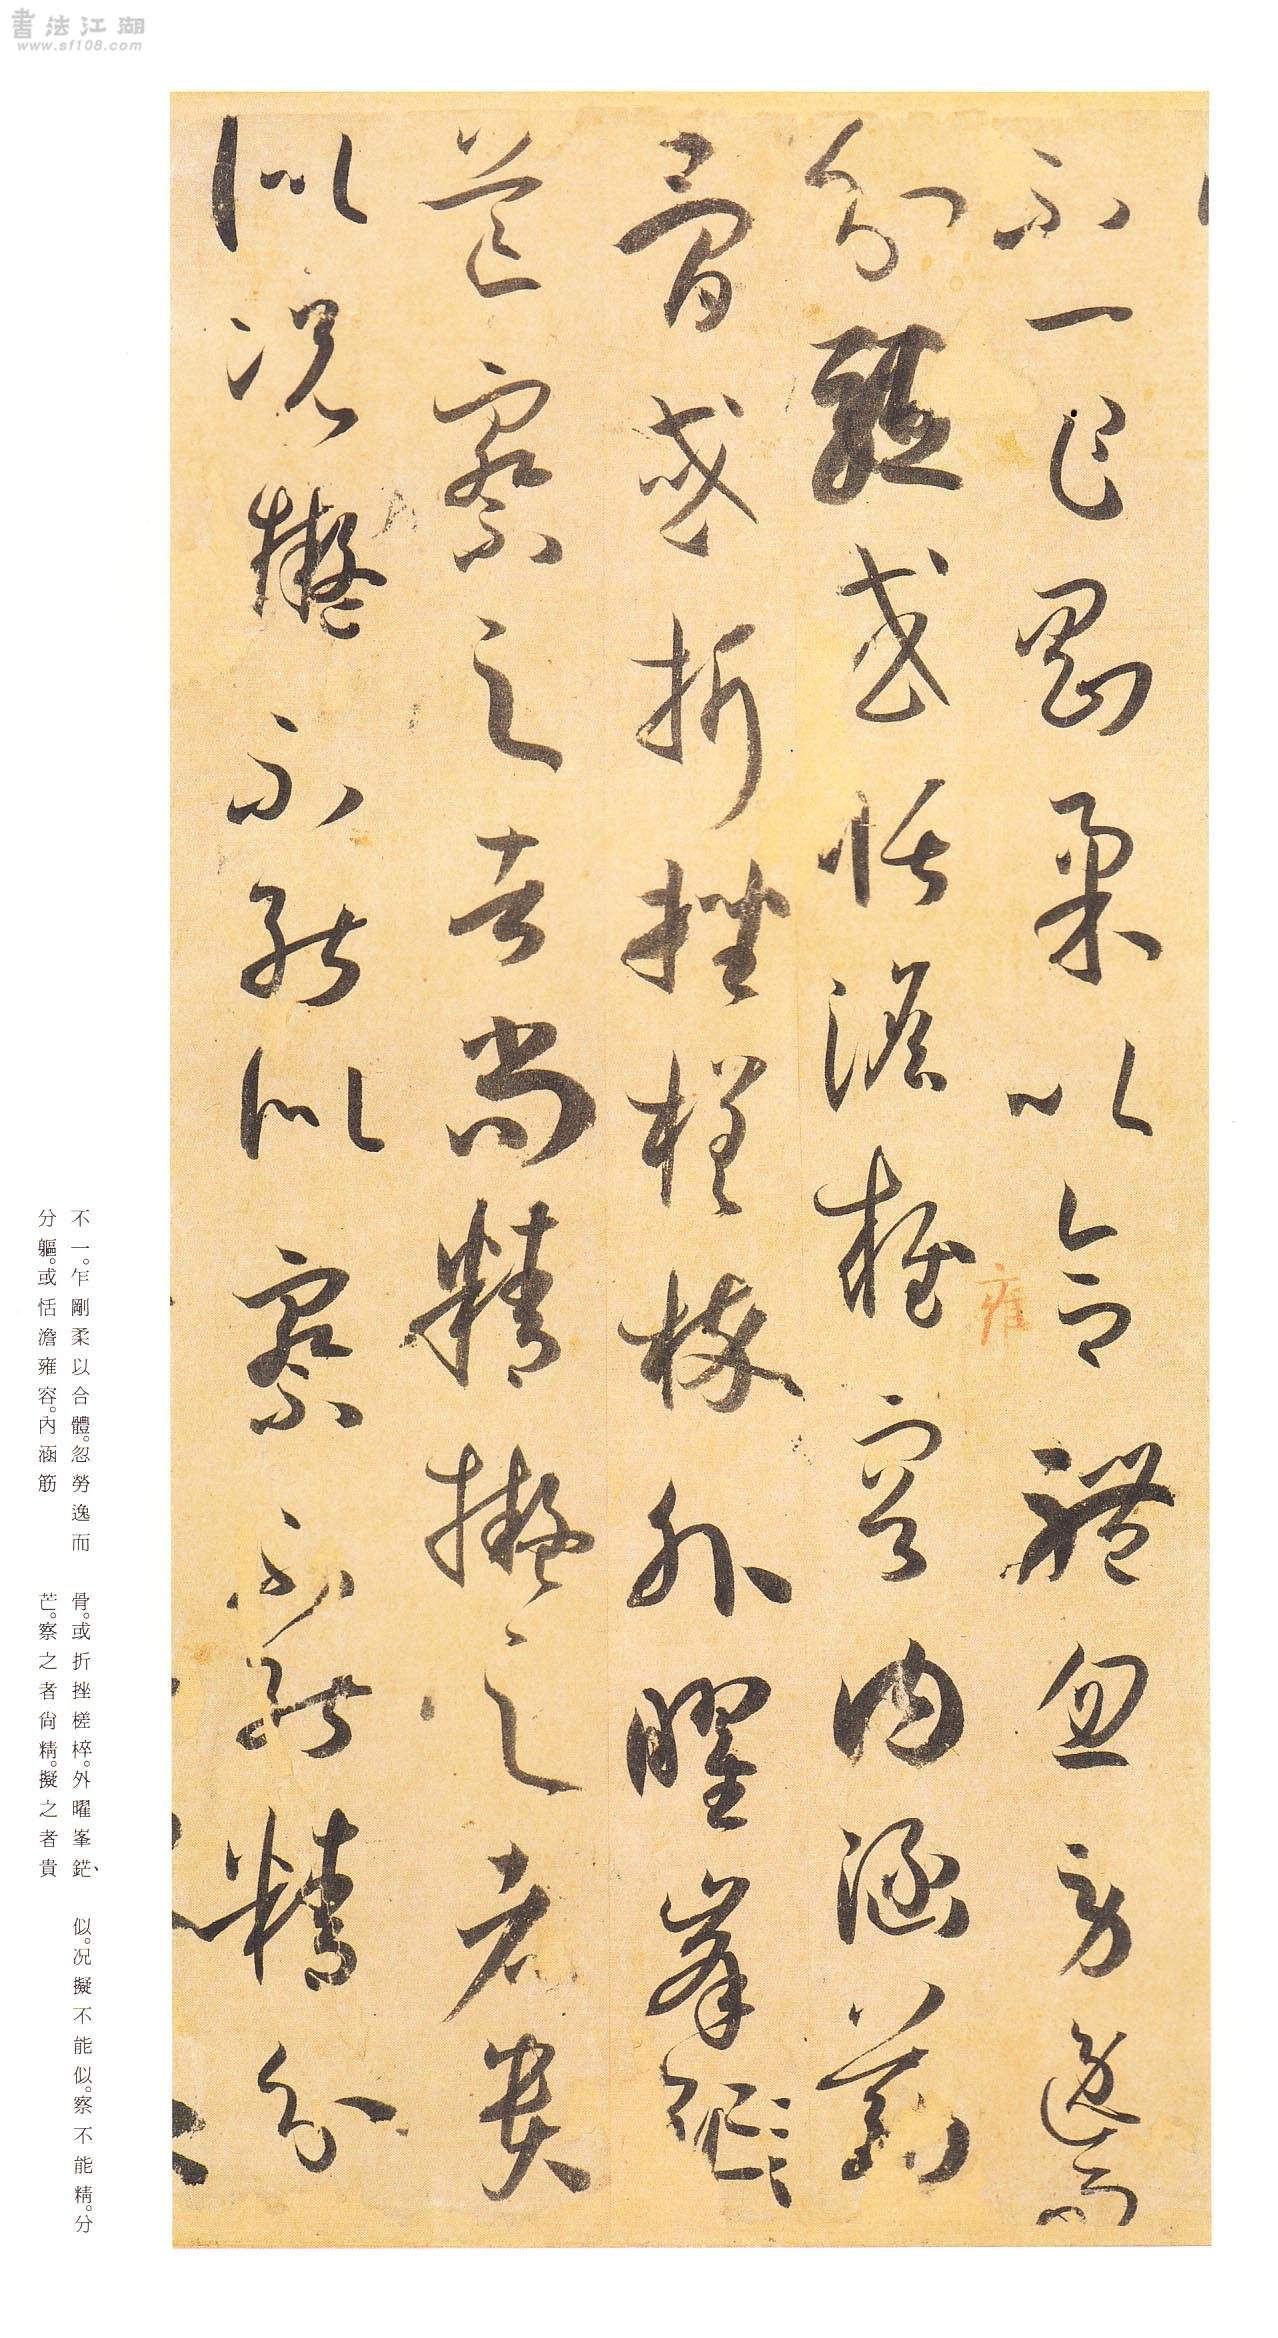 書法江湖
www.sf108.com
不一乍剛柔以合體忽勞逸而
分驅或恬澹雍容內涵筋
雍
骨或折挫槎枿外曜峯鋩
芒察之者尚精擬之者貴
似況擬不能似察不能精分
不一。乍剛柔以合體。忽勞逸而
分軀。或恬澹雍容。內涵筋
骨。或折挫槎枿。外曜峯鋩、
芒。察之者尙精。擬之者貴
似。况擬不能似。察不能精。分